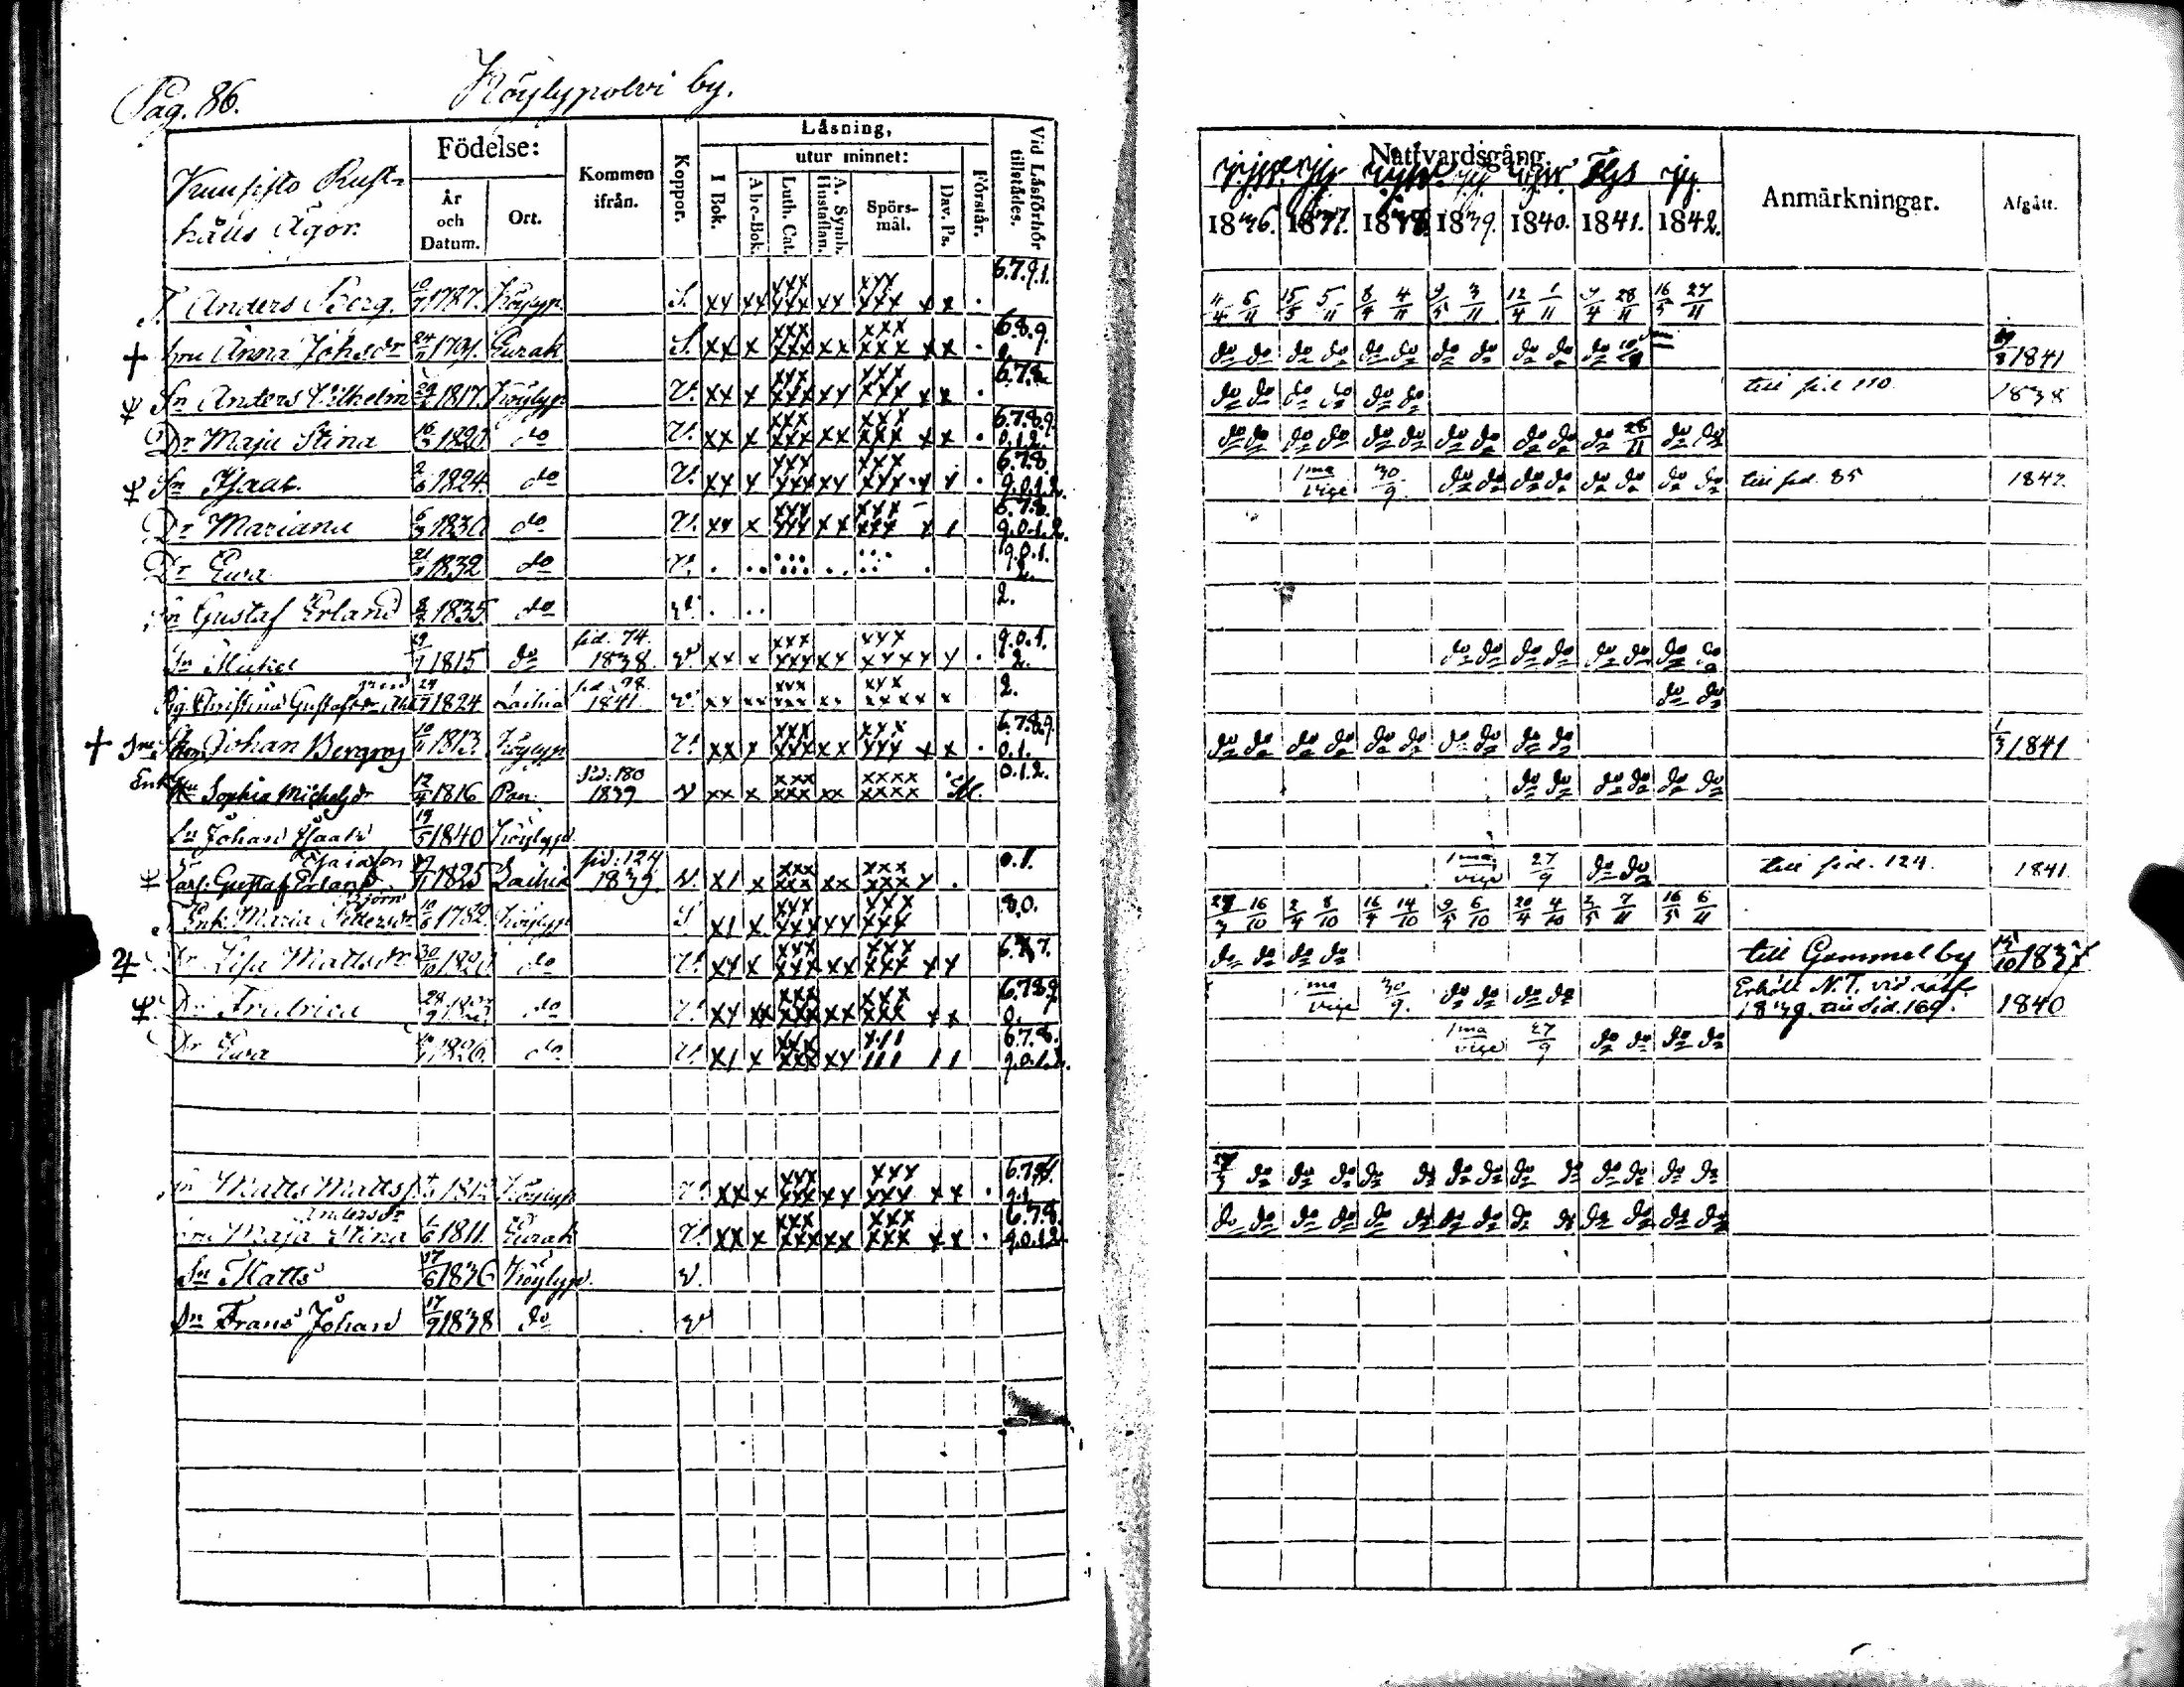 Pag. 86. Köylypolvi by.
Kuusisto Rust-
hålls Ägor.
Födelse:
År och Datum.
Ort.
Kommen ifrån.
Koppor.
Läsning,
utur minnet:
I Bok.
Abc-Bok.
Luth. Cat.
A. Symb. Hustaflan.
Spörs-mål.
Dav. Ps.
Förstår.
Vid Läsförhör tillstädes.
Nattvardsgång.
1836. 1837. 1838 1839. 1840. 1841. 1842.
Anmärkningar.
Afgått.
Anders Berg. 1787. Köylyp. S. xx xx xxx xxx xx xxx xxx x x . 6.7.9.1. 4/4 6/11 15/5 5/11 8/4 4/11 9/5 3/11 12/4 1/11 9/4 28/11 16/5 27/11
+ Hu Anna Johsdr 24/7 1791. Eurab. S. xx x xxx xxx xx xxx xxx xx . 6.8.9. do do do do do do do do do do do 1841
Sn Anders Wilhelm 1817. Köylyp V. xx x xxx xxx xx xxx xxx xx . 6.7.8. do do do do do do till sid 110. 1838
Dr Maja Stina 16/3 1820. do V. xx x xxx xxx xx xxx xxx x x . 6.7.8.9. 0.1.2. do do do do do do do do do do do 28/11 do do
Sn Isaac. 2/6 1824. do V. xx x xxx xxx xx xxx 6.7.8. 9.0.1.2. 1ma vice 30/9. do do do do do do do do till sid. 85 1842.
Dr Mariana 6/3 1830 do V. xx x xxx xxx xx xxx xxx 6.7.8. 9.0.1.2.
Dr Eva 21/ 1832 do V. . .. 9.0.1. 2.
Sn Gustaf Erland 8/2 1835 do v. . .. 2.
Sn Michel 29/ 1815 do sid. 74. 1838. v xx x xxx xxx xx xxx xxxx x . 9.0.1. 2. do do do do do do do do
Pig. Christina Gustafsdr 24/ 1824 Laihia sid. 98. 1841. v xx xx xxx xxx xx xxx 2. do do
+ Johan Bergroy 10/ 1813. Köylyp V. xx x xxx xxx xx xxx xxx x x . 6.7.8.9. 0.1. do do do do do do do do do do 1/3 1841
Enk. Sophia Michelsdr 12/4 1816 Pän. Sid: 180 1839 v xx x xxx xxx xx xxxx xxxx 0.1.2. do do do do do do
Sn Johan Isaak 19/5 1840 Köylyp.
Esaiasson
Gustaf Erland 1825 Laihia sid: 124 1839. v. x1 x xxx xxx xx xxx xxx x . 0.1. 1ma vice 27/9 do do till sid. 124. 1841.
Björn
Enk. Maria Pettersdr 10/6 1782. Köylyp S x1 x. xxx xxx xx xxx xxx 8.0. 16/10 2/4 8/10 16/4 14/10 9/5 6/10 20/4 4/10 2/5 7/11 16/5 6/11
Dr Lisa Mattsdr 30/10 1820 do V. xx x xxx xxx xx xxx xxx xx 6.7. do do do do till Gammelby 1837
Dr Fredrica 28/9 do V. xx xx xxx xxx xx xxx xxx xx 6.7.8.9. 0. 1ma vice 30/9. do do do do Erhöll N.T. vid 1839. sid. 169. 1840
Dr Eva 1826. do V. x1 x xxx xxx xx x11 111 11 6.7.8. 9.0.1.2. 1ma vice 27/9 do do do do
Matts Matts 1812 Köylyp V. xx x xxx xxx xx xxx xxx xx . 6.7.8. do do do do do do do do do do do do do
Andersdr
Hu Maja Stina 1811. Eurab V. xx x xxx xxx xx xxx xxx xx . 6.7.8. 9.0.1.2. do do do do do do do do do do do do do do
Sn Matts 17/6 1836 Köylyp. v.
Sn Frans Johan 17/9 1838 do v